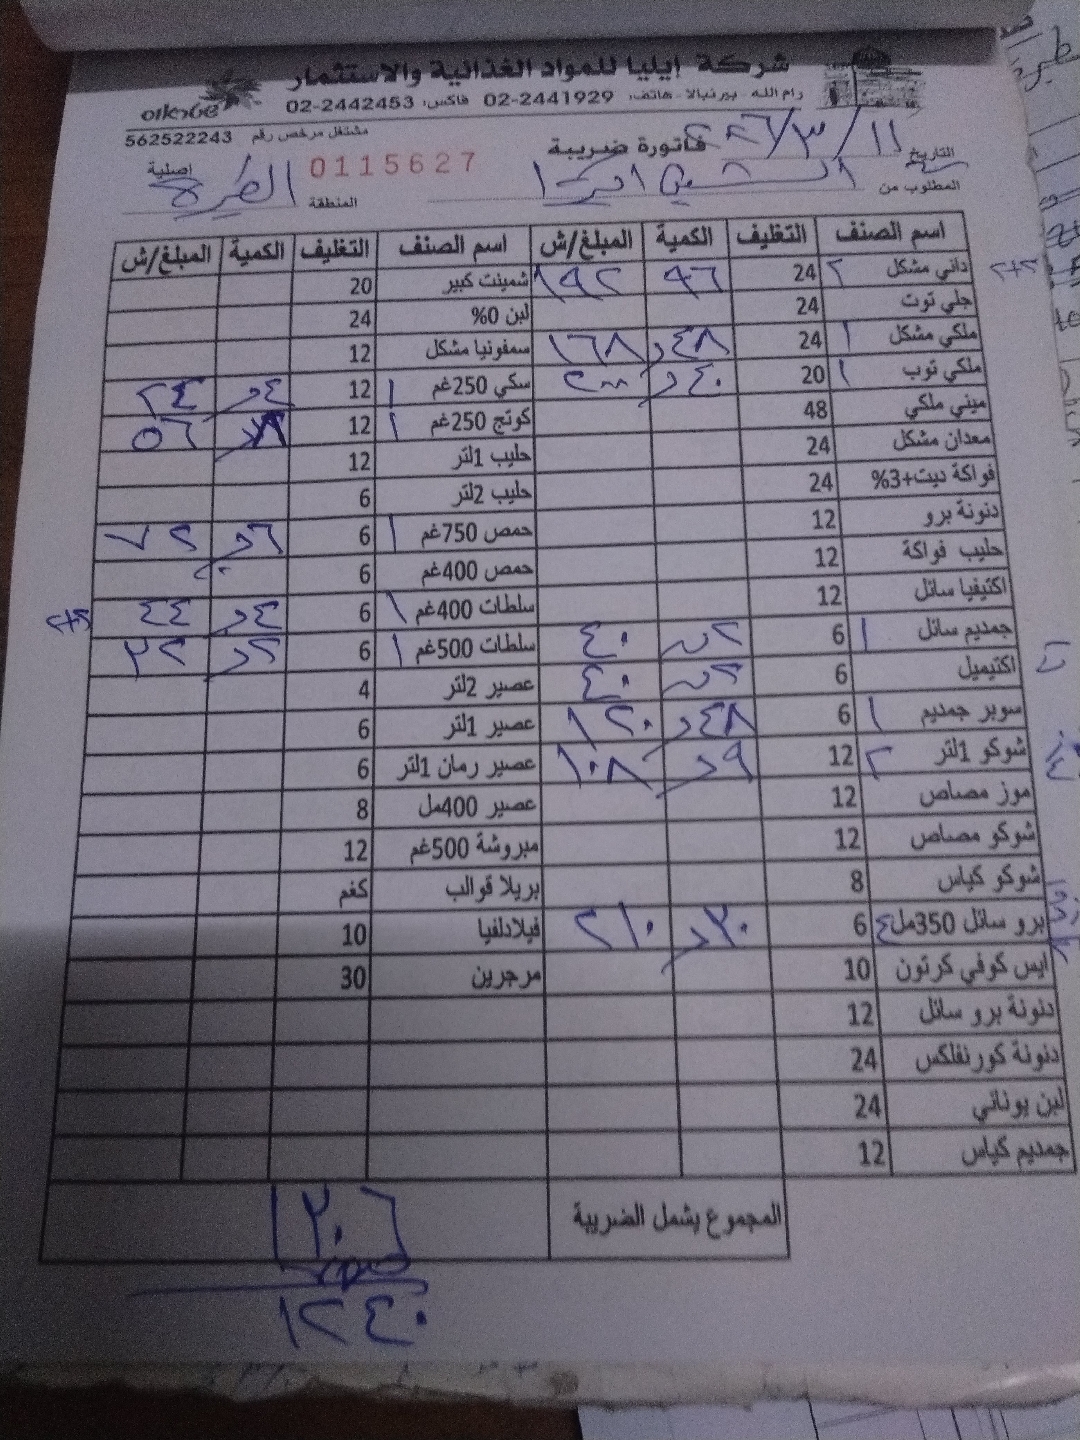 شركة إيليا للمواد الغذائية والاستثمار
رام الله - بيرنبالا - هاتف: 02-2441929 فاكس: 02-2442453
مشتغل مرخص رقم 562522243
التاريخ ١١/٣/
فاتورة ضريبة
0115627
اصلية
المطلوب من
المنطقة
اسم الصنف التغليف الكمية المبلغ/ش اسم الصنف التغليف الكمية المبلغ/ش
داني مشكل ٢ 24 ٩٦ ١٩٢ شمينت كبير 20
جلي توت 24 لبن 0% 24
ملكي مشكل ١ 24 ٤٨ ١٦٨ سمفونيا مشكل 12
ملكي توب ١ 20 ٤٠ سكي 250غم ١ 12 ٤ ٢٤
ميني ملكي 48 كوتج 250غم ١ 12 ٥٦
معدان مشكل 24 حليب 1لتر 12
فواكة ديت+3% 24 حليب 2لتر 6
دنونة برو 12 حمص 750غم ١ 6 ٦ ٧٢
حليب فواكة 12 حمص 400غم 6
اكتيفيا سائل 12 سلطات 400غم ١ 6 ٤ ٤٤
جمديم سائل ١ 6 ٢ ٤٠ سلطات 500غم ١ 6 ٢ ٣٢
اكتيميل 6 ٢ ٤٠ عصير 2لتر 4
سوبر جمديم ١ 6 ٤٨ ١٢٠ عصير 1لتر 6
شوكو 1لتر ٢ 12 ٩ ١٠٨ عصير رمان 1لتر 6
موز مصاص 12 عصير 400مل 8
شوكو مصاص 12 مبروشة 500غم 12
شوكو كياس 8 بريلا قوالب كغم
برو سائل 350مل ٤ 6 ٣٠ ٢١٠ فيلادلفيا 10
ايس كوفي كرتون 10 مرجرين 30
دنونة برو سائل 12
دنونة كورنفلكس 24
لبن يوناني 24
جمديم كياس 12
المجموع يشمل الضريبة ١٢٠٦
١٢٤٠